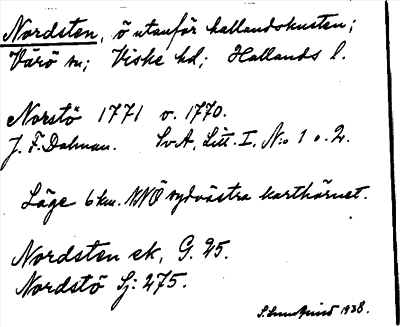 Nordsten, ö utanför hallandskusten;
Värö sn; Viske hd; Hallands l.
Norstö 1771 o. 1770.
J. F. Dalman. SvA, Litt. I. N:o 1 o. 2.
Läge 6 km. NNO sydvästra karthörnet.
Nordsten ek, G. 25.
Nordstö Sj: 275.
S. 1938.